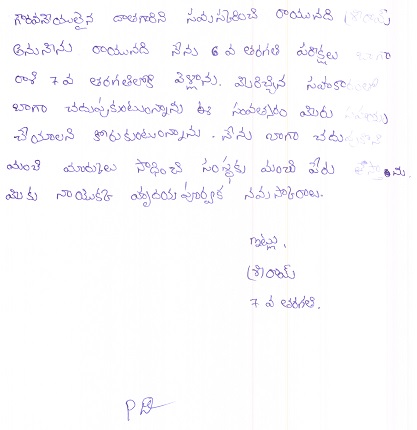 గౌరవనీయులైన దాతగారికి నమస్కరించి రాయునది శ్రీరామ్
అనునాను రాయునది నేను 6 వ తరగతి పరీక్షలు బాగా
రాశి 7 వ తరగతిలోకి వెళ్లాను. మీరిచ్చిన సహకారంతో
బాగా చదువుకుంటున్నాను ఈ సంవత్సరం మీరు సహాయం
చేయాలని కోరుకుంటున్నాను. నేను బాగా చదువుకొని
మంచి మార్కులు సాధించి సంస్థకు మంచి పేరు తెస్తాను.
మీకు నాయొక్క హృదయపూర్వక నమస్కారాలు.
ఇట్లు,
శ్రీరామ్
7 వ తరగతి.